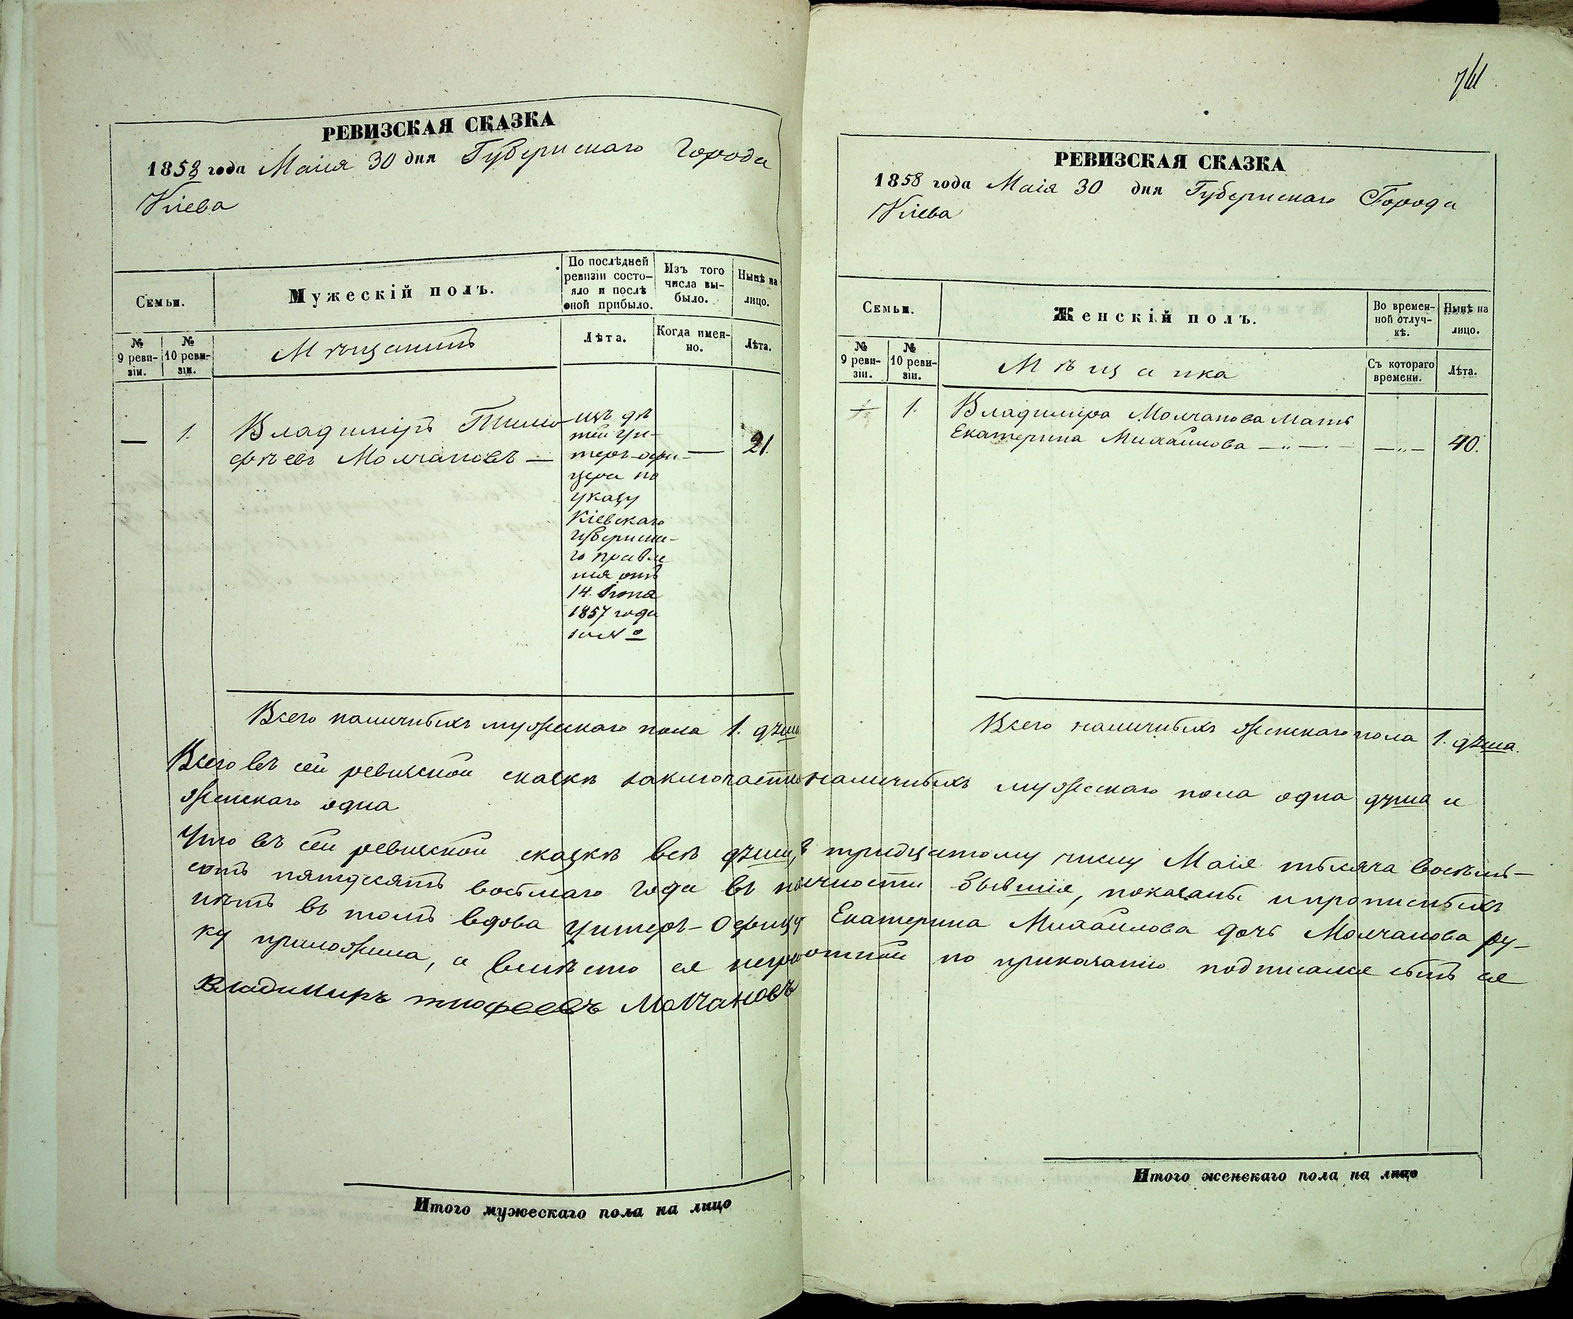 РЕВИЗСКАЯ СКАЗКА
1858 года Маия 30 дня Губернскаго Города
Кіева
Семьи.
Мужескій полъ.
По послѣдней ревизіи состояло и послѣ оной прибыло.
Изъ того числа выбыло.
Нынѣ на лицо.
№ 9 ревизіи.
№ 10 ревизіи.
Мѣщанинъ
Лѣта.
Когда именно.
Лѣта.
— 1. Владиміръ Тимо-
фѣевъ Молчановъ —
изъ дѣ
тей Ун-
теръ-офи-
цера по
указу
Кіевскаго
Губернска-
го правле
нія отъ
14. Іюня
1857 года
— 21.
Всего наличныхъ мужескаго пола 1. душа
РЕВИЗСКАЯ СКАЗКА
1858 года Маія 30 дня Губернскаго Города
Кіева
Семьи.
Женскій полъ.
Во временной отлучкѣ.
Нынѣ на лицо.
№ 9 ревизіи.
№ 10 ревизіи.
Мѣщанка
Съ котораго времени.
Лѣта.
1. Владиміра Молчанова Мать
Екатерина Михайлова —„— —„— 40.
Всего наличныхъ женскаго пола 1. душа.
Всего въ сей ревизской сказкѣ заключается наличныхъ мужескаго пола одна душа и
женскаго одна
Что въ сей ревизской сказкѣ всѣ души, къ тридцатому числу Маія тысяча восемь-
сотъ пятдесятъ восьмаго года въ наличности бывшія, показаны и прописныхъ
нѣтъ въ томъ вдова Унтеръ-Офицера Екатерина Михайлова дочь Молчанова ру-
ку приложила, а вмѣсто ея неграмотной по приказанію подписался сынъ ея
Владимиръ тмофеевъ Молчановъ
Итого мужескаго пола на лицо
Итого женскаго пола на лицо